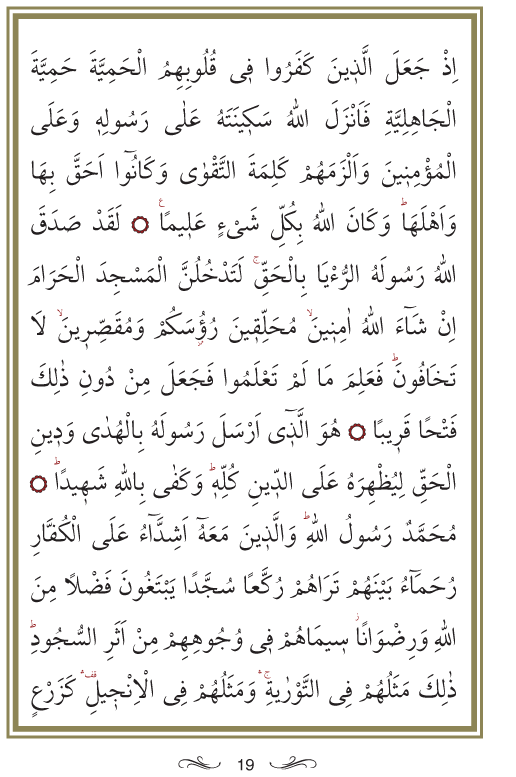 اِذْ جَعَلَ الَّذ۪ينَ كَفَرُوا ف۪ى قُلُوبِهِمُ الْحَمِيَّةَ حَمِيَّةَ
الْجَاهِلِيَّةِ فَاَنْزَلَ اللّٰهُ سَك۪ينَتَهُ عَلٰى رَسُولِه۪ وَعَلَى
الْمُؤْمِن۪ينَ وَاَلْزَمَهُمْ كَلِمَةَ التَّقْوٰى وَكَانُٓوا اَحَقَّ بِهَا
وَاَهْلَهَاۜ وَكَانَ اللّٰهُ بِكُلِّ شَىْءٍ عَل۪يمًا۟ ۝ لَقَدْ صَدَقَ
اللّٰهُ رَسُولَهُ الرُّءْيَا بِالْحَقِّۚ لَتَدْخُلُنَّ الْمَسْجِدَ الْحَرَامَ
اِنْ شَٓاءَ اللّٰهُ اٰمِن۪ينَۙ مُحَلِّق۪ينَ رُؤُ۫سَكُمْ وَمُقَصِّر۪ينَۙ لَا
تَخَافُونَۜ فَعَلِمَ مَا لَمْ تَعْلَمُوا فَجَعَلَ مِنْ دُونِ ذٰلِكَ
فَتْحًا قَر۪يبًا ۝ هُوَ الَّذ۪ٓى اَرْسَلَ رَسُولَهُ بِالْهُدٰى وَد۪ينِ
الْحَقِّ لِيُظْهِرَهُ عَلَى الدّ۪ينِ كُلِّه۪ۜ وَكَفٰى بِاللّٰهِ شَه۪يدًاۜ ۝
مُحَمَّدٌ رَسُولُ اللّٰهِۜ وَالَّذ۪ينَ مَعَهُٓ اَشِدَّٓاءُ عَلَى الْكُفَّارِ
رُحَمَٓاءُ بَيْنَهُمْ تَرَاهُمْ رُكَّعًا سُجَّدًا يَبْتَغُونَ فَضْلًا مِنَ
اللّٰهِ وَرِضْوَانًاۘ س۪يمَاهُمْ ف۪ى وُجُوهِهِمْ مِنْ اَثَرِ السُّجُودِۜ
ذٰلِكَ مَثَلُهُمْ فِى التَّوْرٰيةِۚۛ وَمَثَلُهُمْ فِى الْاِنْج۪يلِ۠ۛ كَزَرْعٍ
19